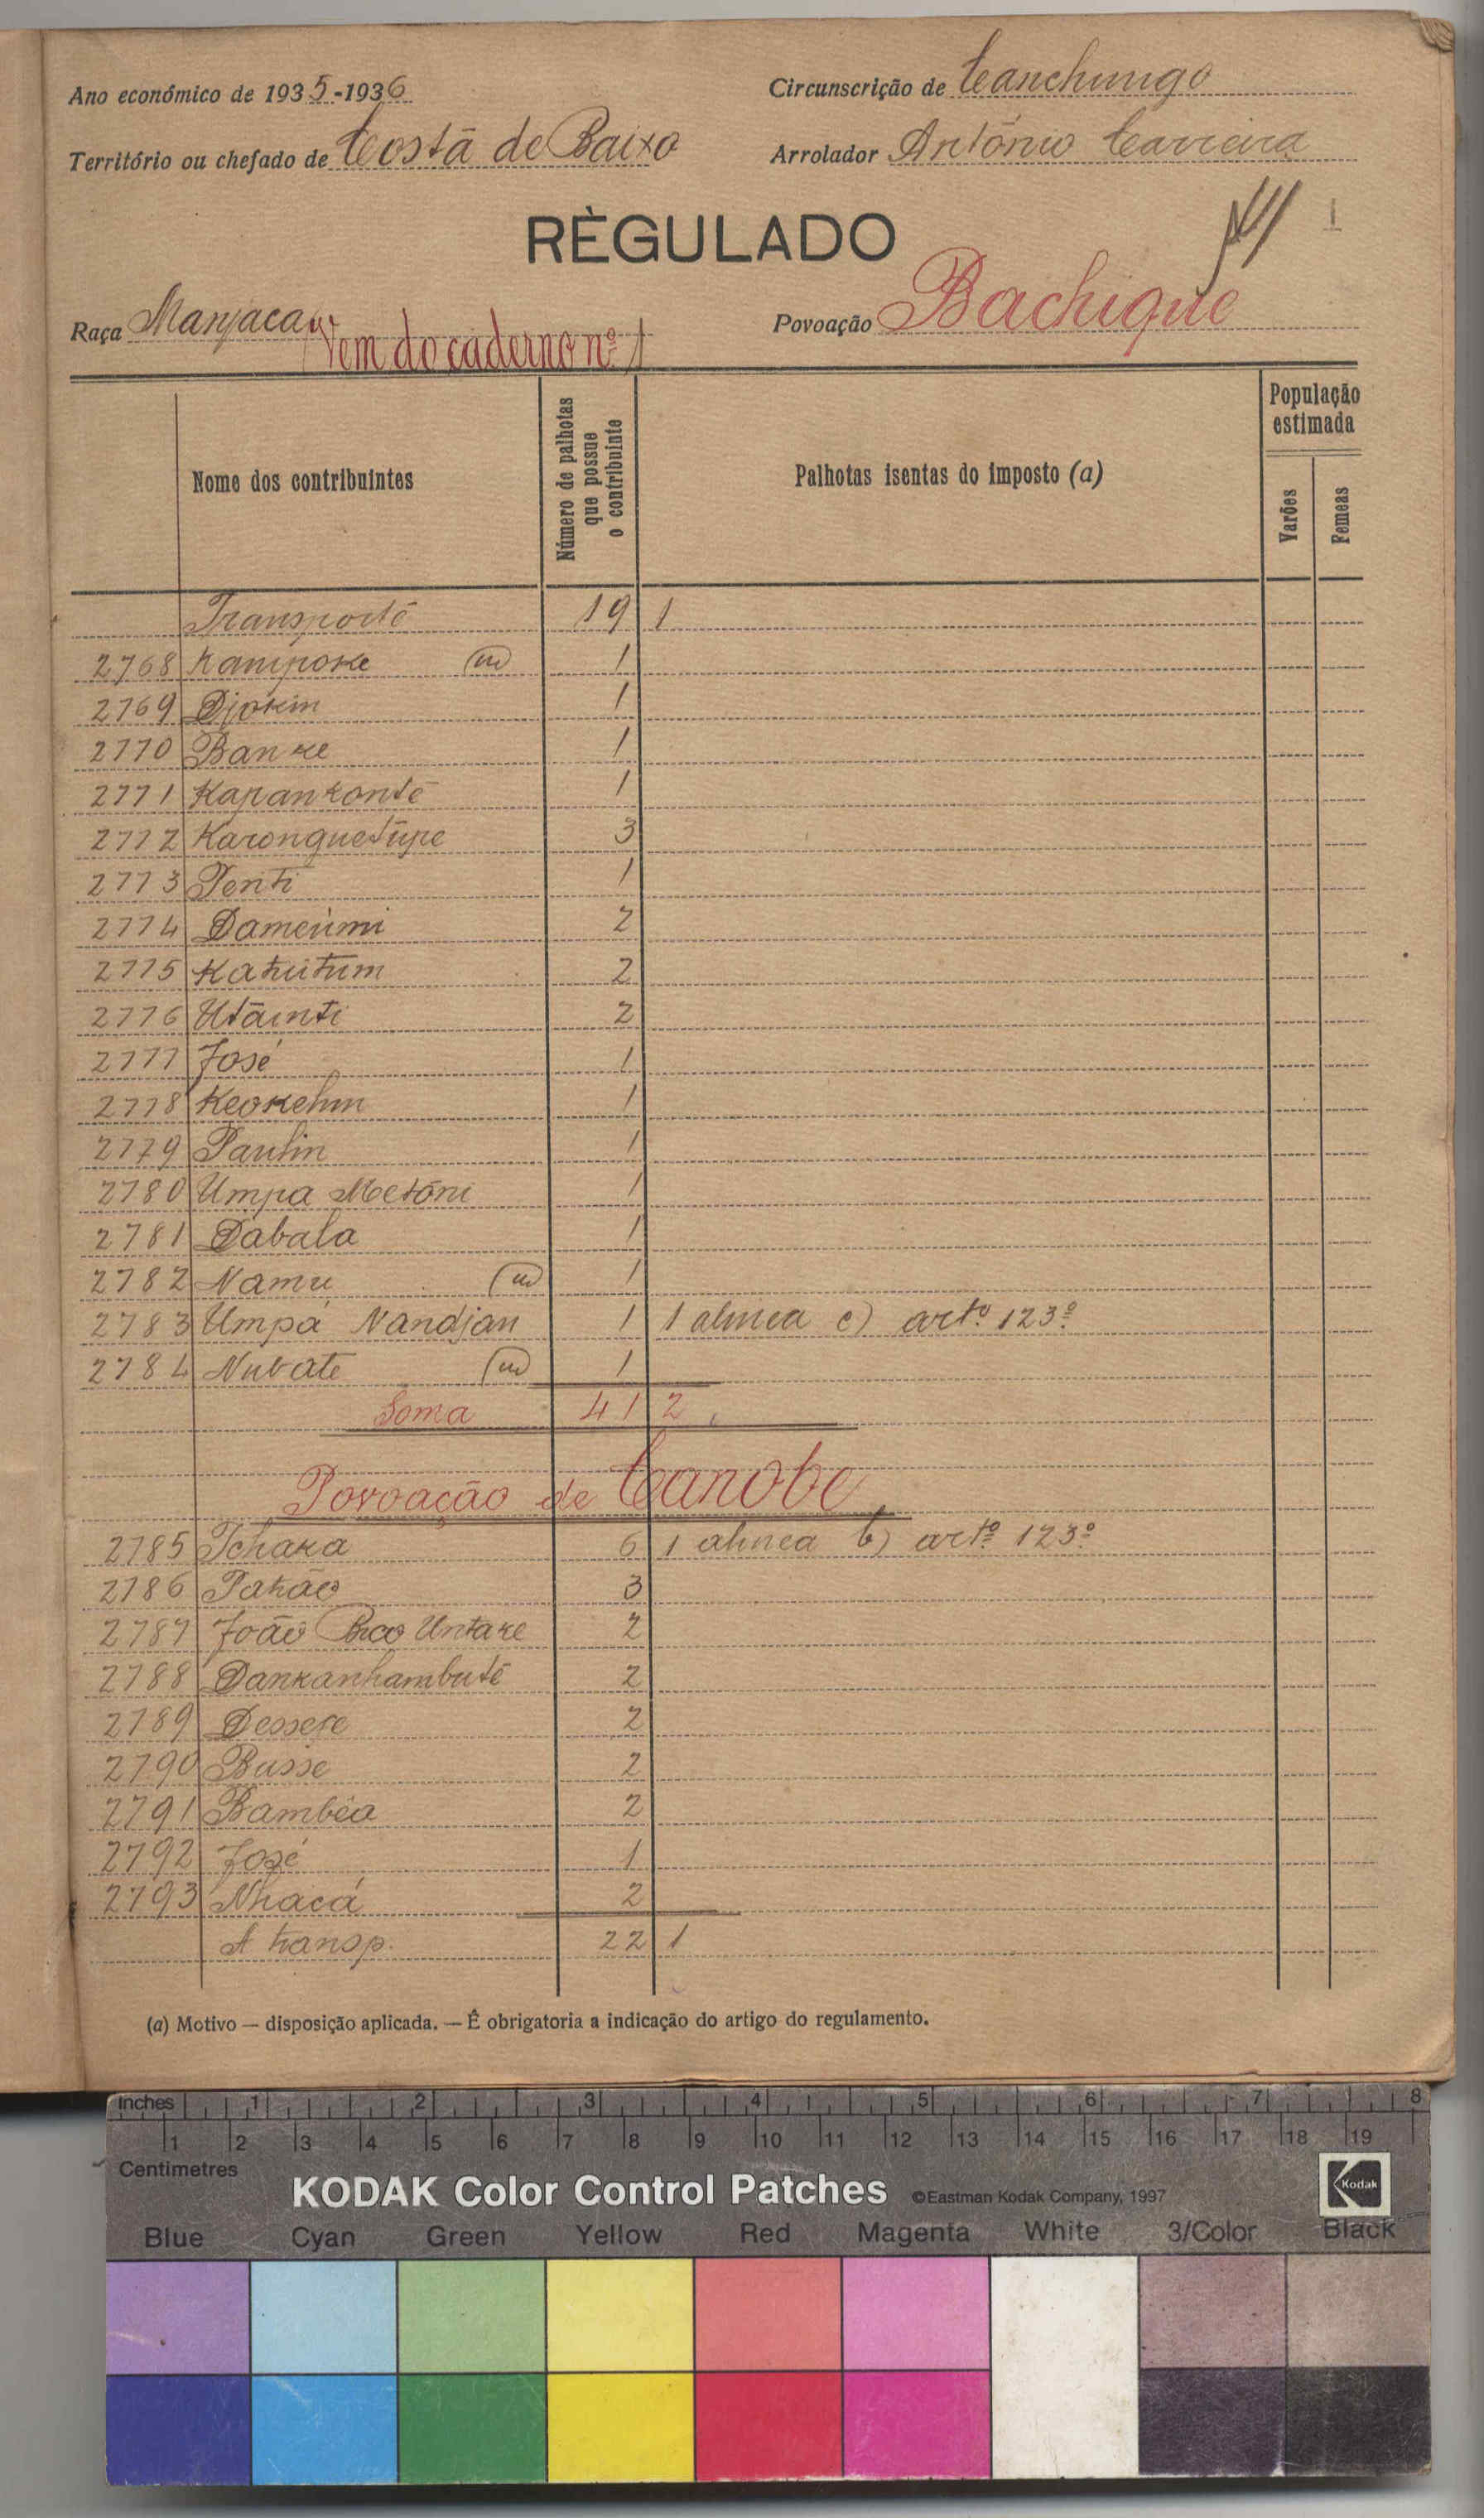 Ano económico de 1935-1936
Circunscrição de Canchungo
Território ou chefado de Costa de Baixo
Arrolador António Carreira
RÈGULADO
1
Raça Manjaca
Povoação Bachique
Vem do caderno nº 1
Nome dos contribuintes
Número de palhotas que possue o contribuinte
Palhotas isentas do imposto (a)
População estimada
Varões
Femeas
Transporte 19 1
2768 Kampoke (m) 1
2769 Djokin 1
2770 Banke 1
2771 Kapankonte 1
2772 Karonguetupe 3
2773 Penti 1
2774 Dameumi 2
2775 Katutum 2
2776 Utainti 2
2777 José 1
2778 Keokehm 1
2779 Paulin 1
2780 Umpa Metóni 1
2781 Dabala 1
2782 Namu (m) 1
2783 Umpá Nandjan 1 1 alinea c) artº 123º
2784 Nubate (m) 1
Soma 41 2
Povoação de Canobe
2785 Tchaka 6 1 alinea b) artº 123º
2786 Patrão 3
2787 João Untake 2
2788 Dankanhambuté 2
2789 Dessefe 2
2790 Busse 2
2791 Bambêa 2
2792 José 1
2793 Nhacá 2
A transp. 22 1
(a) Motivo — disposição aplicada. — É obrigatoria a indicação do artigo do regulamento.
Inches 1 2 3 4 5 6 7 8
1 2 3 4 5 6 7 8 9 10 11 12 13 14 15 16 17 18 19
Centimetres
KODAK Color Control Patches ©Eastman Kodak Company, 1997 Kodak
Blue Cyan Green Yellow Red Magenta White 3/Color Black